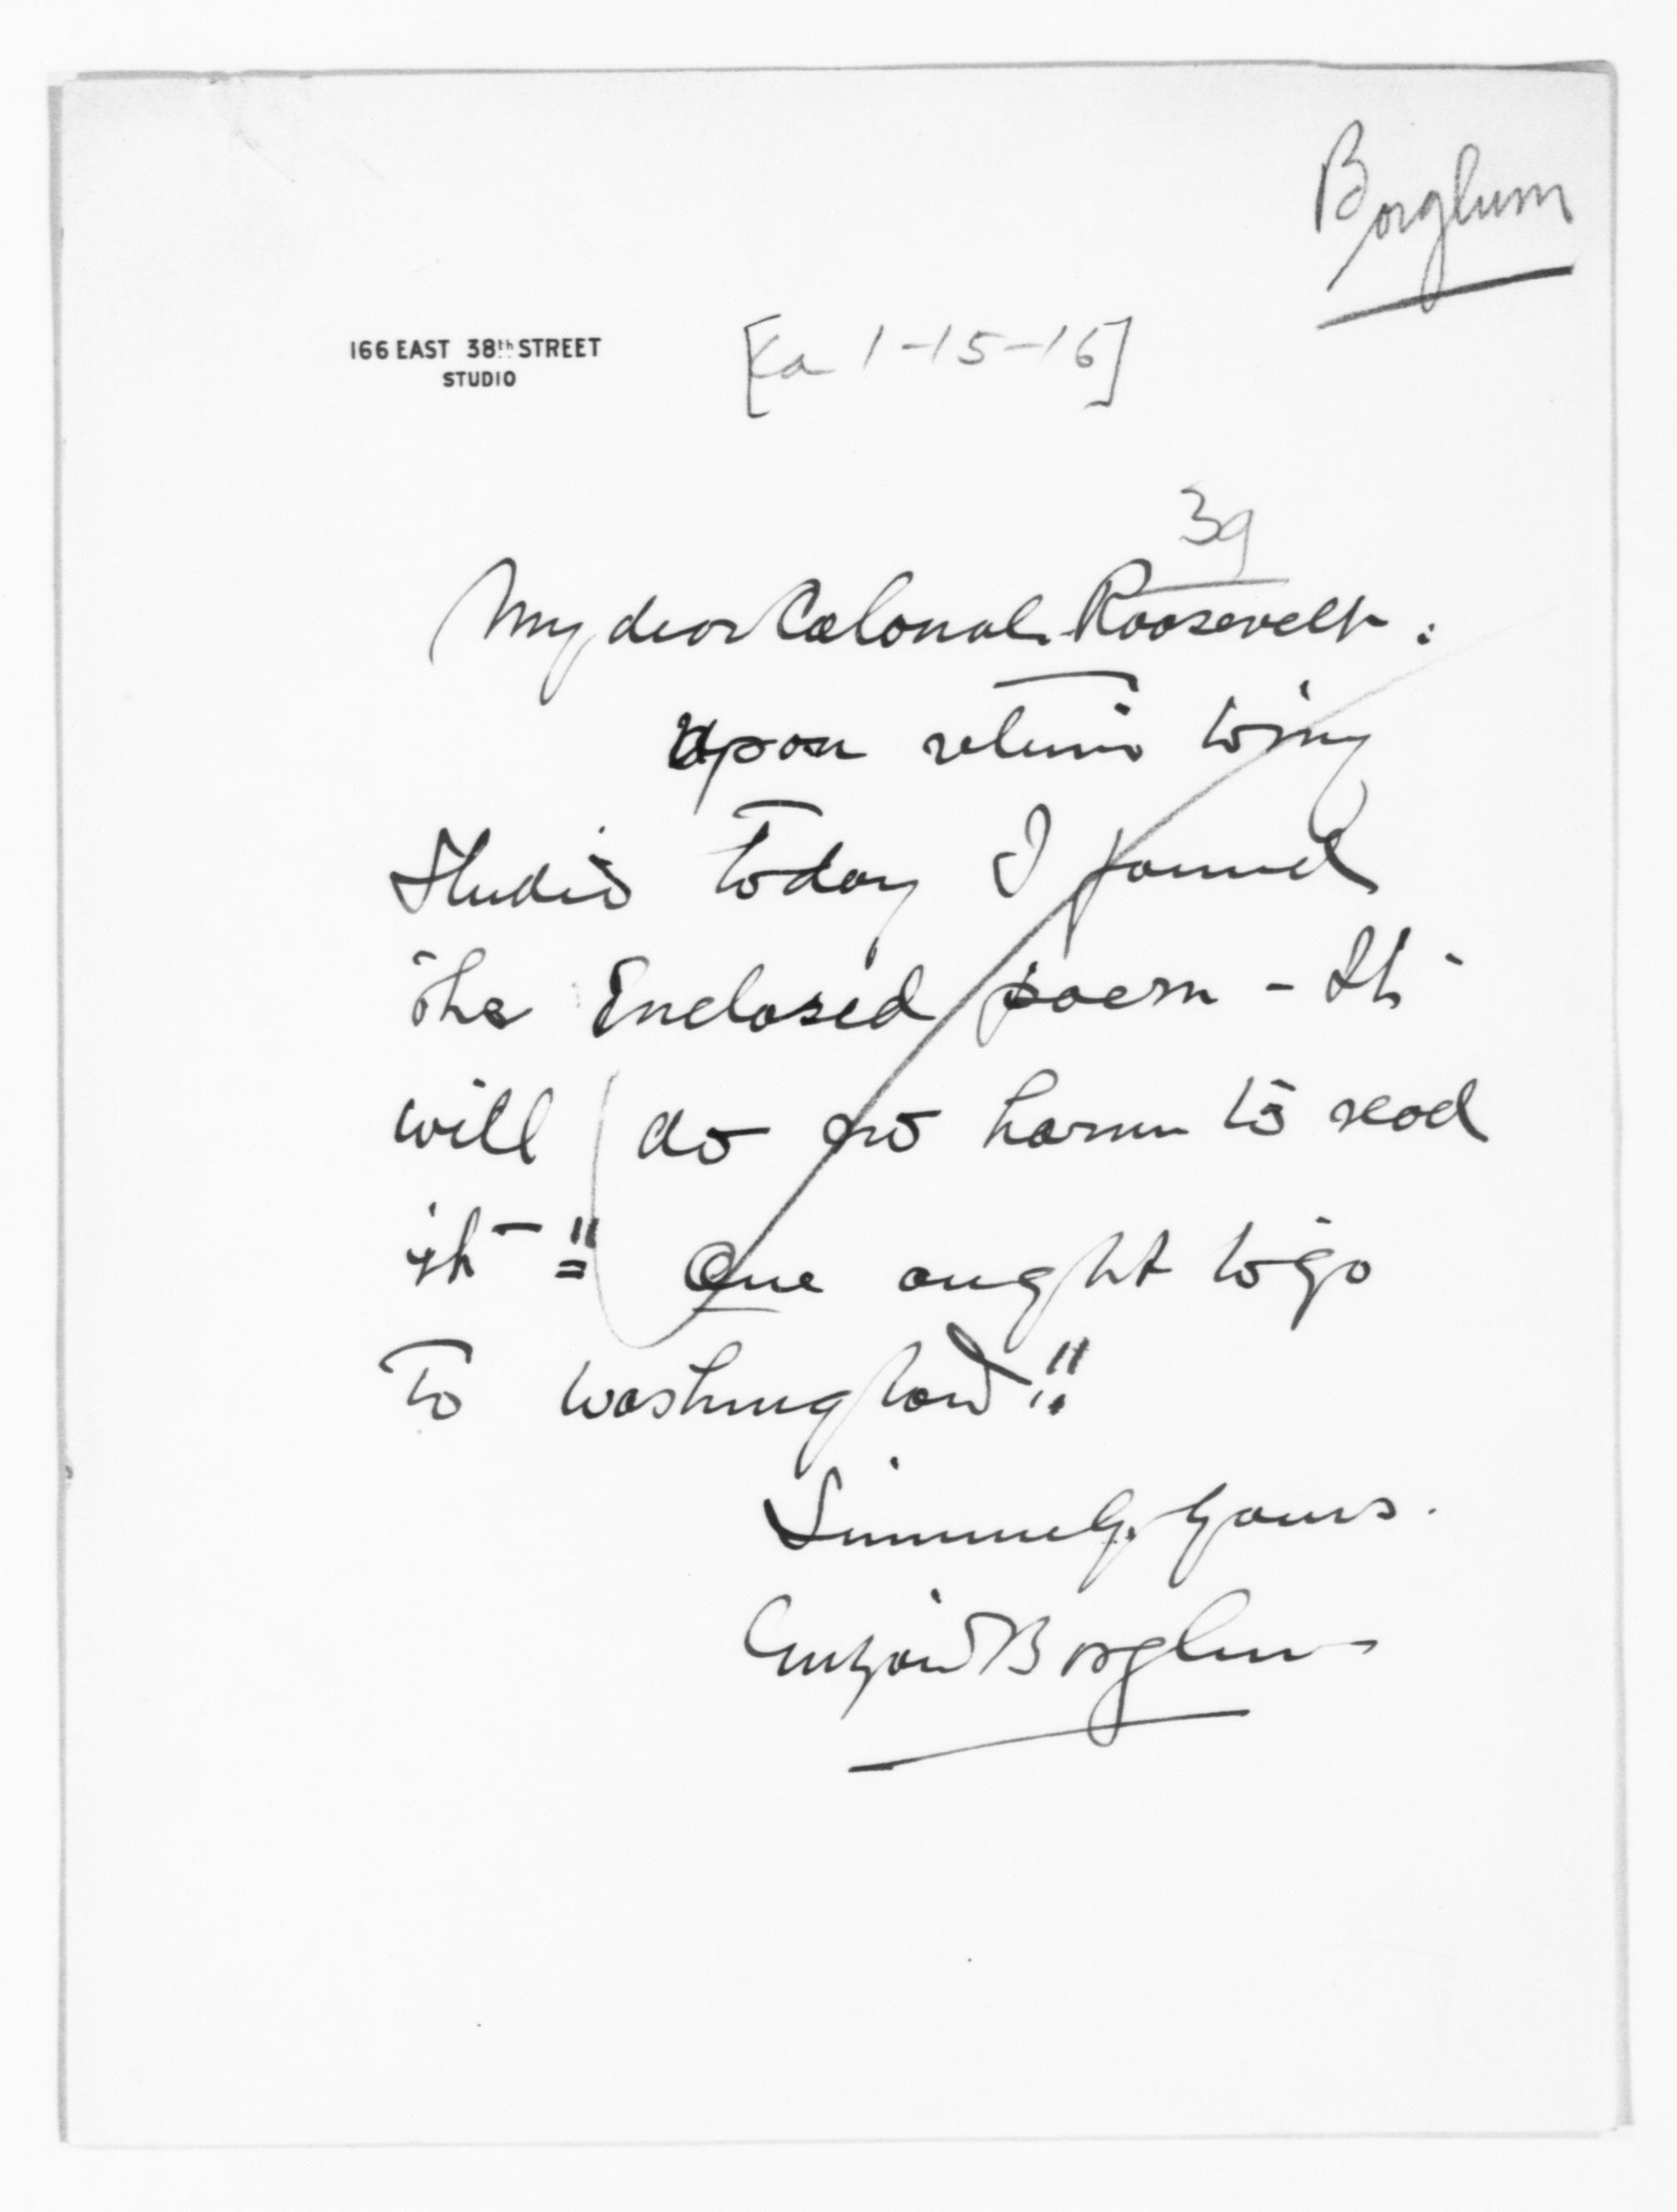 Borglum
166 EAST 38th STREET
STUDIO
[Ca 1-15-16]
39
My dear Colonal Roosevelt:
Upon return to my
Studio Today I found
The Enclosed poem - It
will do no harm to read
it - !! One ought to go
To Washington!!
Sincerely yours.
Gutzon Borglum